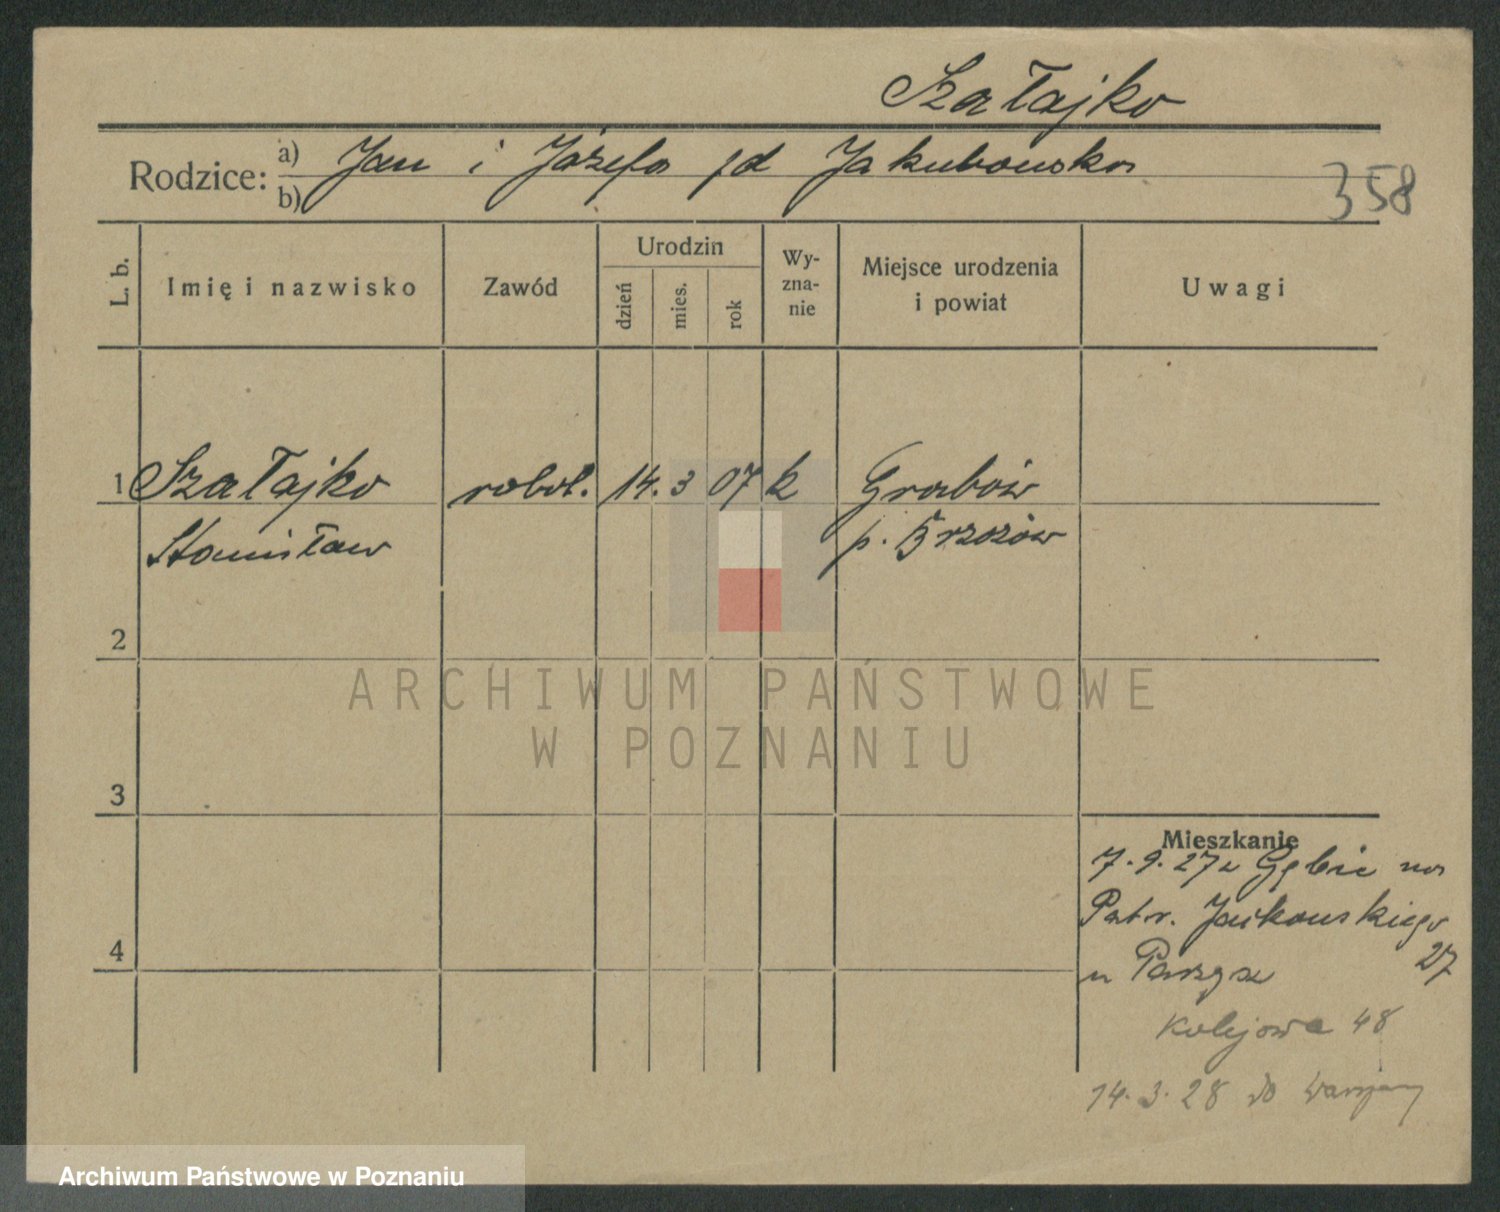 Szałajko
Rodzice: a) Jan i Józefa zd Jakubowska
b)
358
L. b.
Imię i nazwisko
Zawód
Urodzin
dzień
mies.
rok
Wy-
zna-
nie
Miejsce urodzenia
i powiat
Uwagi
1 Szałajko robot. 14. 3 07 k Grabów
Stanisław p. Brzozów
2
ARCHIWUM PAŃSTWOWE
W POZNANIU
3
Mieszkanie
7.9.27 z Gębic na
Patr. Jackowskiego
27
u
Kolejowa 48
14.3.28 do Warszawy
4
Archiwum Państwowe w Poznaniu